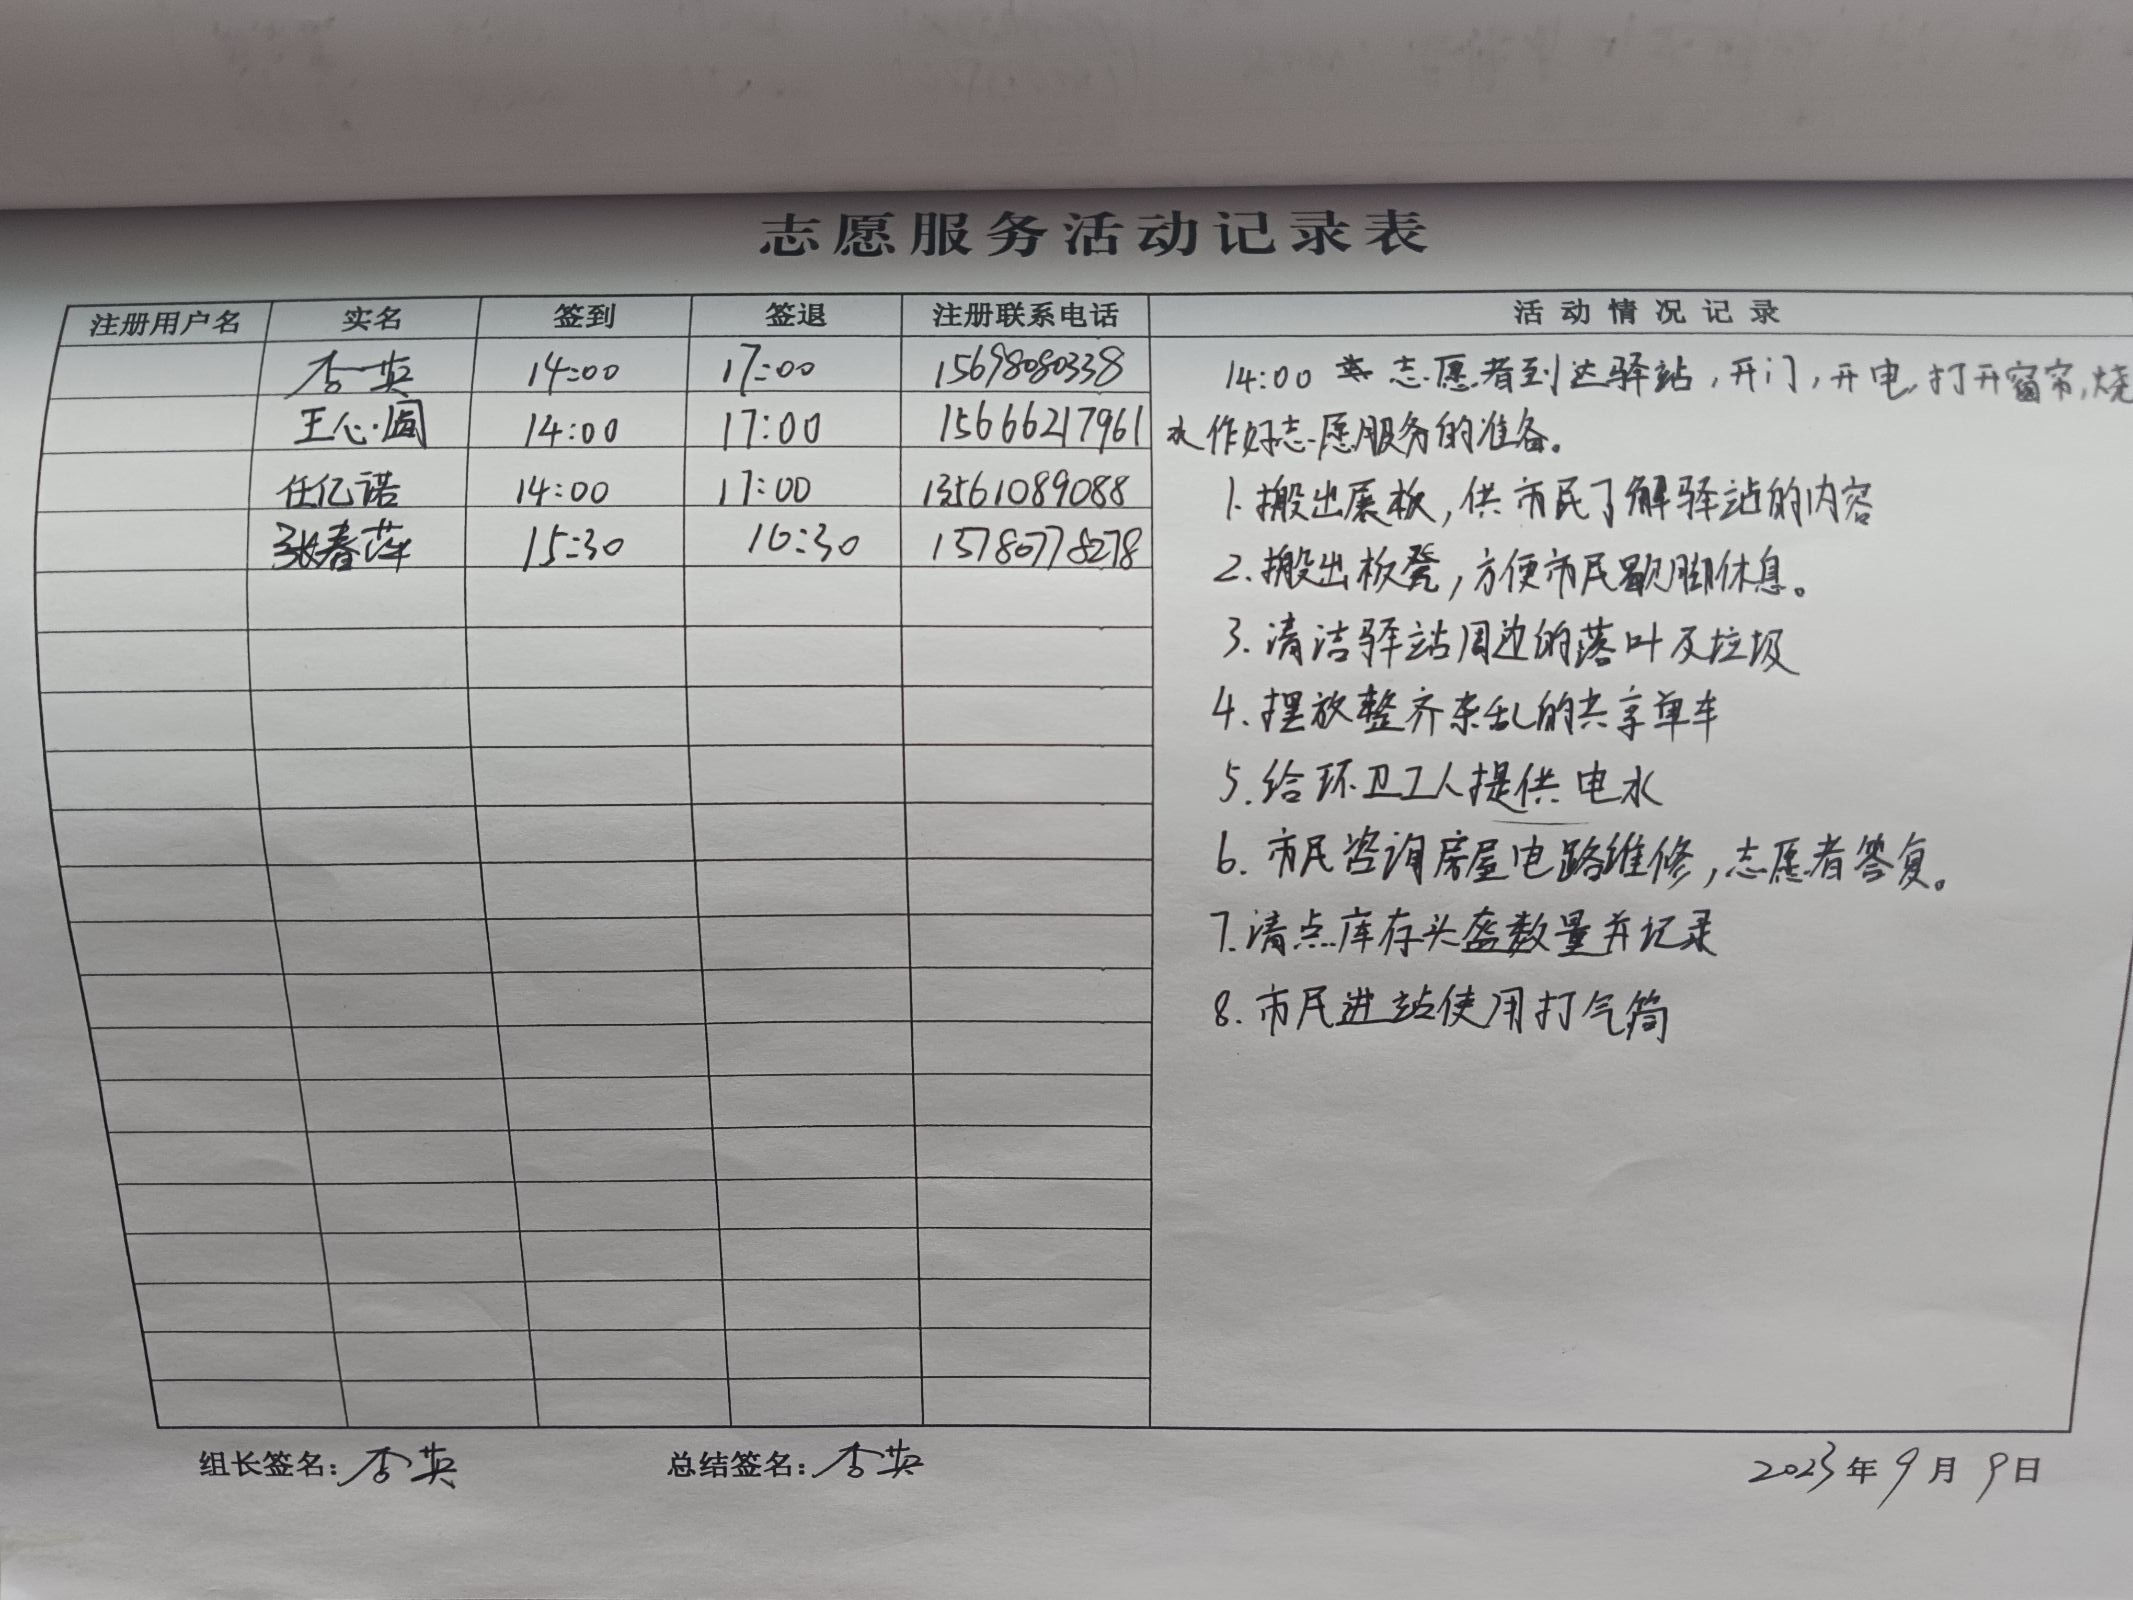 志愿服务活动记录表
注册用户名 实名 签到 签退 注册联系电话 活动情况记录
李英 14:00 17:00 15698080338
王心 14:00 17:00 15666217961
任亿诺 14:00 17:00 13561089088
张春萍 15:30 16:30 15780778278
14:00 志愿者到达驿站,开门,开电,打开窗帘,烧
水作好志愿服务的准备。
1.搬出展板,供市民了解驿站的内容
2.搬出板凳,方便市民歇脚休息。
3.清洁驿站周边的落叶及垃圾
4.摆放整齐杂乱的共享单车
5.给环卫工人提供电水
6.市民咨询房屋电路维修,志愿者答复。
7.清点库存头盔数量并记录
8.市民进站使用打气筒
组长签名:李英 总结签名:李英 2023年9月9日